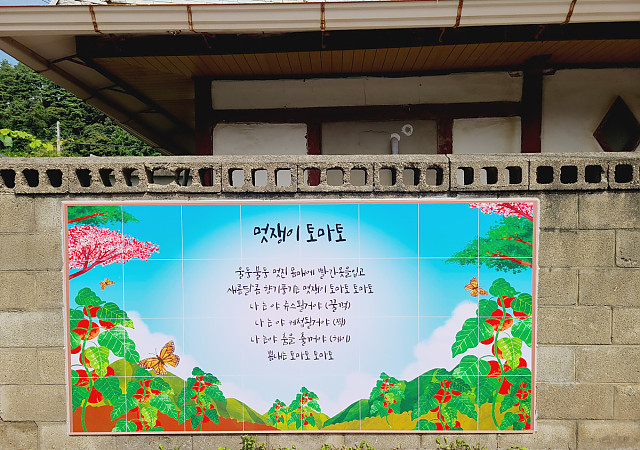 멋쟁이 토마토
울퉁불퉁 멋진 몸매에 빨간옷을입고
새콤달콤 향기풍기는 멋쟁이 토마토 토마토
나는야 쥬스될거야 (꿀꺽)
나는야 케첩될거야 (찍)
나는야 춤을 출거야 (헤이)
뽐내는 토마토 토마토